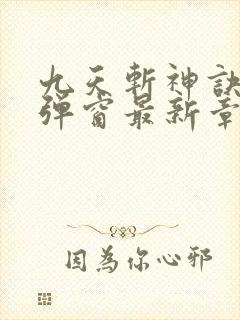 九天斬神訣
彈窗最新章
因為你心邪